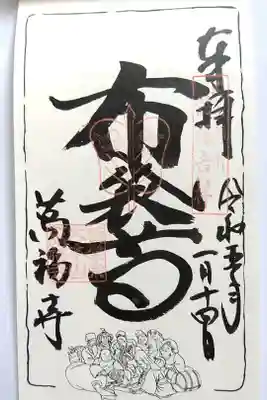 奉拝
令和五年
一月十四日
布袋尊
萬福寺